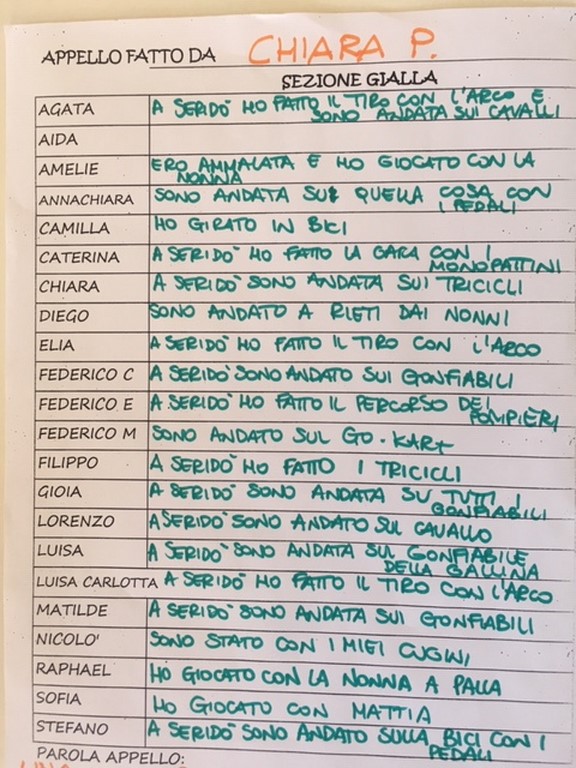 APPELLO FATTO DA CHIARA P.
SEZIONE GIALLA
AGATA A SERIDÒ HO FATTO IL TIRO CON L'ARCO E
SONO ANDATA SUI CAVALLI
AIDA
AMELIE ERO AMMALATA E HO GIOCATO CON LA
NONNA
ANNACHIARA SONO ANDATA SU QUELLA COSA CON
I PEDALI
CAMILLA HO GIRATO IN BICI
CATERINA A SERIDÒ HO FATTO LA GARA CON I
MONOPATTINI
CHIARA A SERIDÒ SONO ANDATA SUI TRICICLI
DIEGO SONO ANDATO A RIETI DAI NONNI
ELIA A SERIDÒ HO FATTO IL TIRO CON L'ARCO
FEDERICO C A SERIDÒ SONO ANDATO SUI GONFIABILI
FEDERICO E A SERIDÒ HO FATTO IL PERCORSO DEI
POMPIERI
FEDERICO M SONO ANDATO SUL GO-KART
FILIPPO A SERIDÒ HO FATTO I TRICICLI
GIOIA A SERIDÒ SONO ANDATA SU TUTTI I
GONFIABILI
LORENZO A SERIDÒ SONO ANDATO SUL CAVALLO
LUISA A SERIDÒ SONO ANDATA SUL GONFIABILE
DELLA GALLINA
LUISA CARLOTTA A SERIDÒ HO FATTO IL TIRO CON L'ARCO
MATILDE A SERIDÒ SONO ANDATA SUI GONFIABILI
NICOLO' SONO STATO CON I MIEI CUGINI
RAPHAEL HO GIOCATO CON LA NONNA A PALLA
SOFIA HO GIOCATO CON MATTIA
STEFANO A SERIDÒ SONO ANDATO SULLA BICI CON I
PEDALI
PAROLA APPELLO: